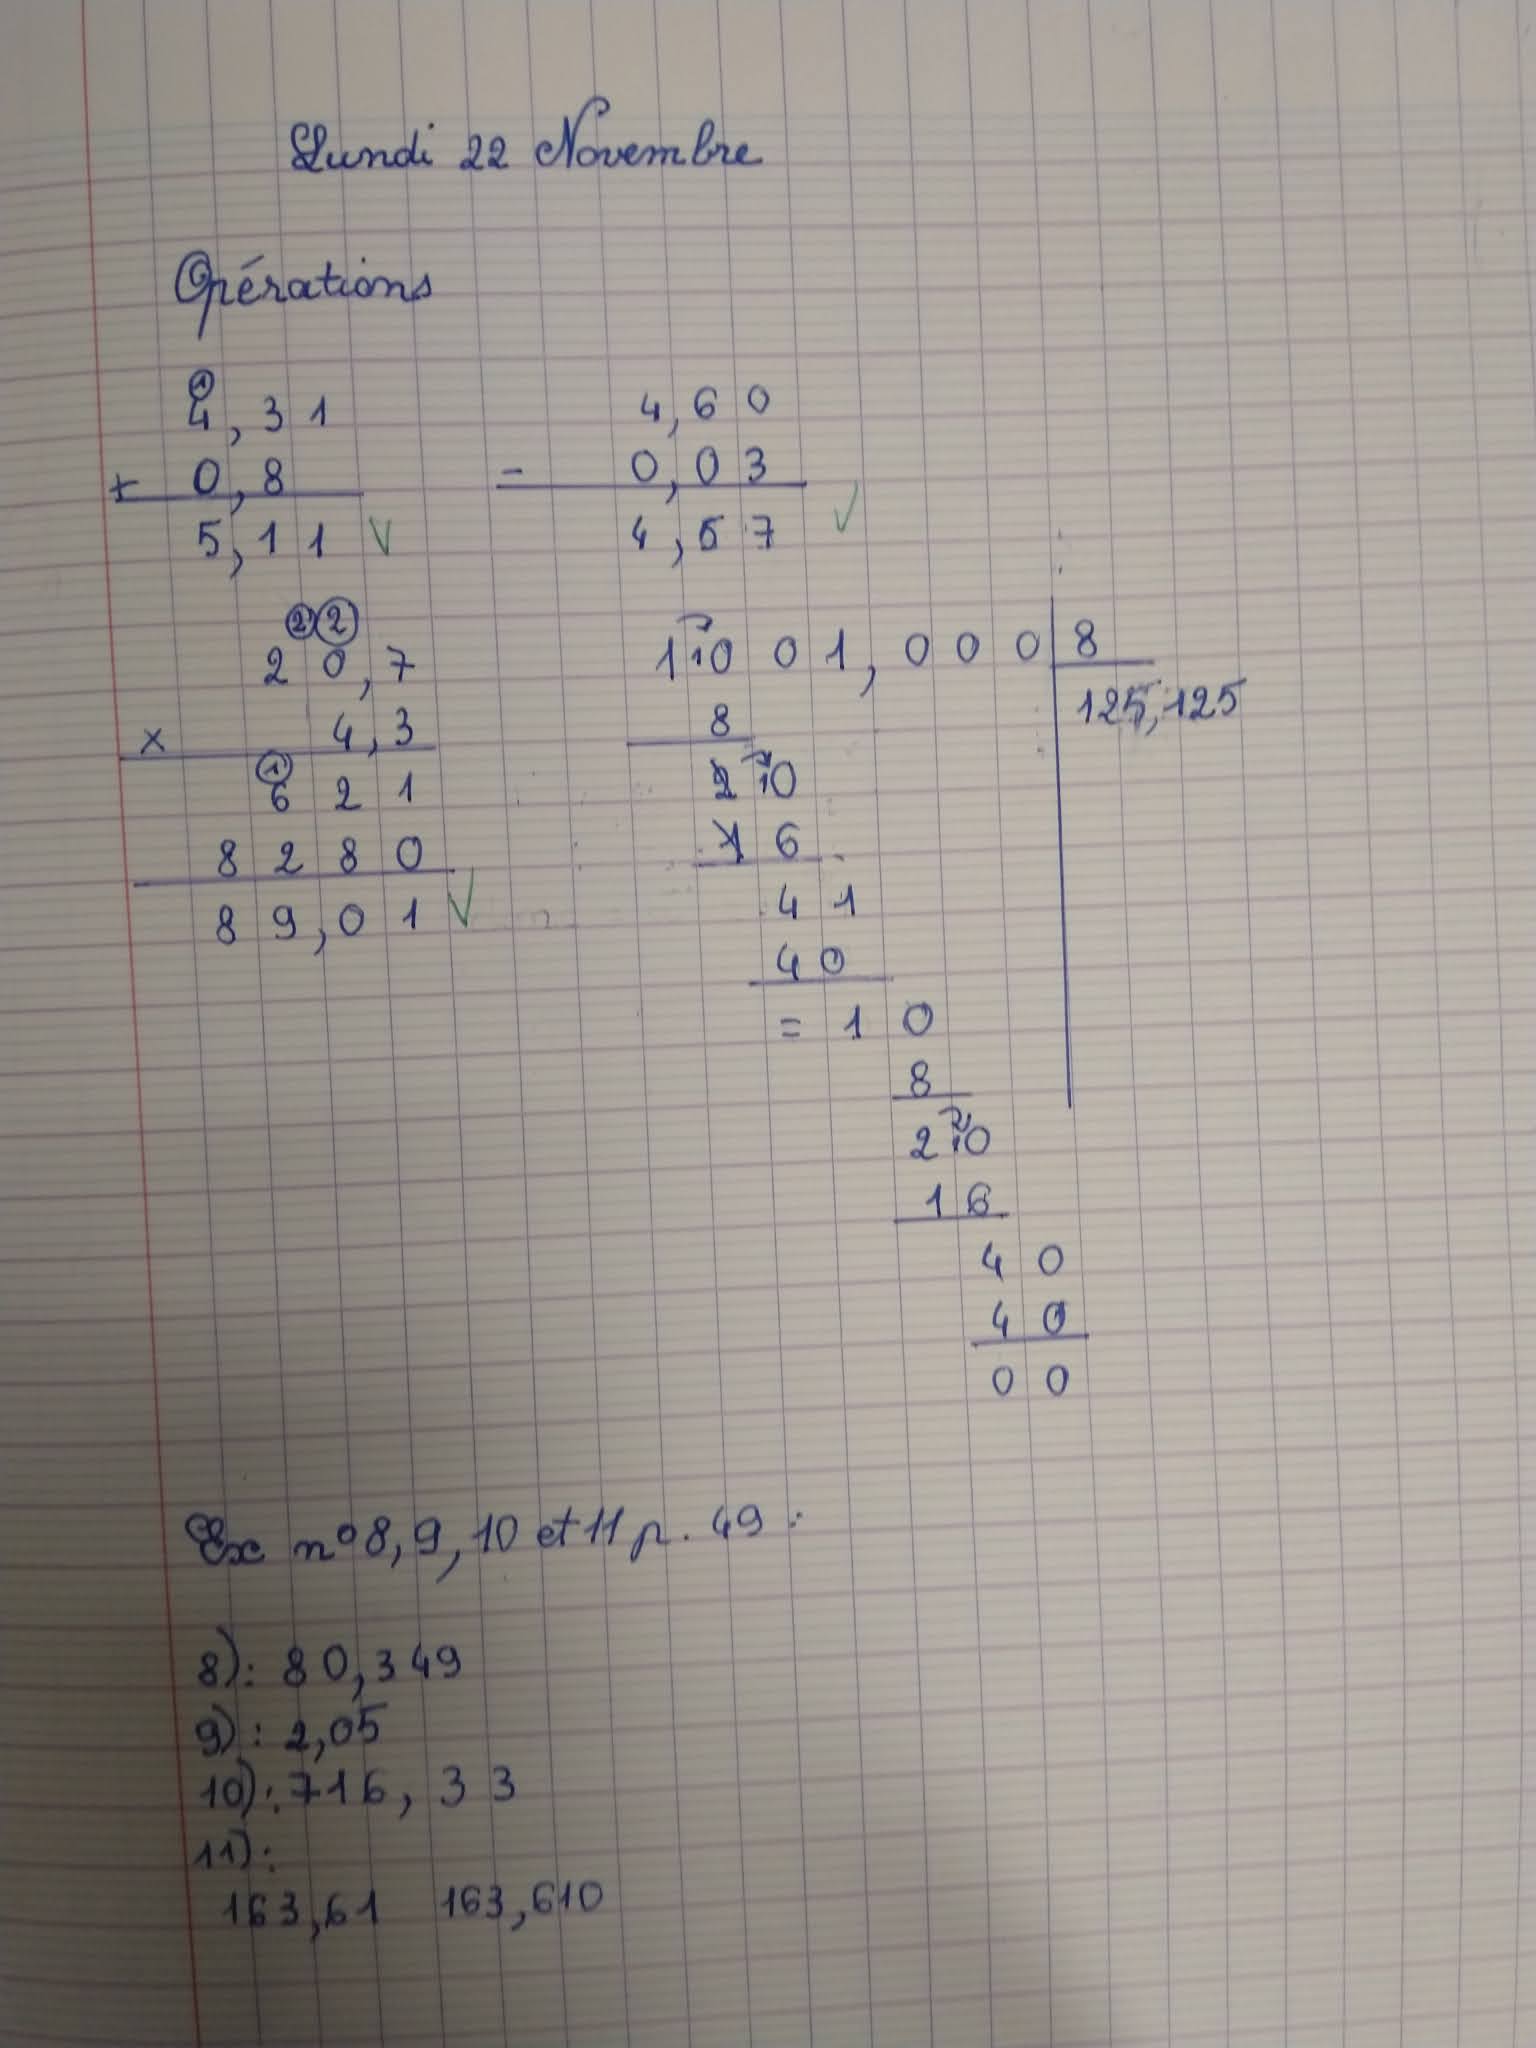 Lundi 22 Novembre
Opérations
①
4,31
+ 0,8
5,11 ✓
4,60
- 0,03
4,57 ✓
② ②
20,7
x 4,3
①
621
8280
89,01 ✓
1001,000 | 8
125,125
8
20
16
41
40
= 10
8
20
16
40
40
00
Ex n°8, 9, 10 et 11 p. 49 :
8) : 80,349
9) : 2,05
10) : 716,33
11) :
163,61 163,610